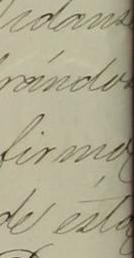 idans
rándos
firmo
de ésta